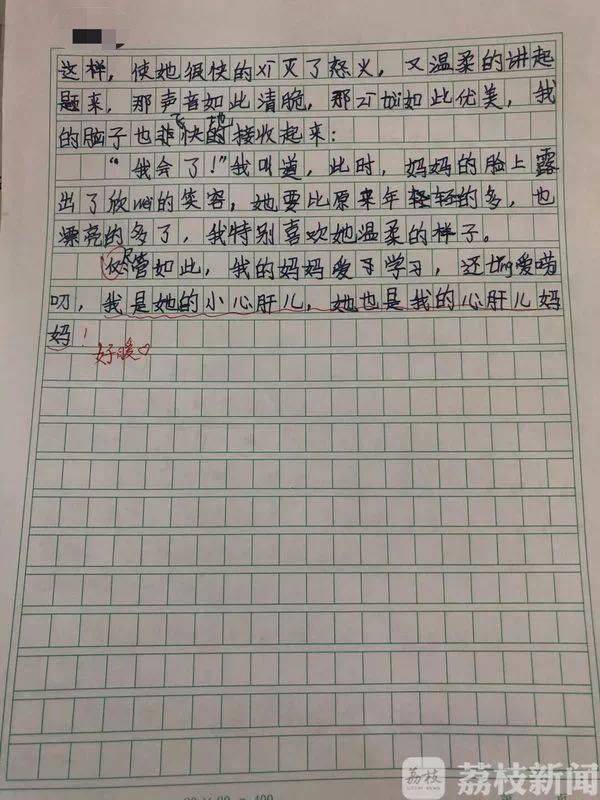 这样，使她很快的xī灭了怒火，又温柔的讲起
题来，那声音如此清脆，那zī tài如此优美，我
飞 地
的脑子也非快的接收起来：
“我会了！”我叫道，此时，妈妈的脸上露
出了欣wèi的笑容，她要比原来年轻的多，也
漂亮的多了，我特别喜欢她温柔的样子。
尽管如此，我的妈妈爱学习，还tǐng爱唠
叨，我是她的小心肝儿，她也是我的心肝儿妈
妈！
好暖
荔枝 荔枝新闻